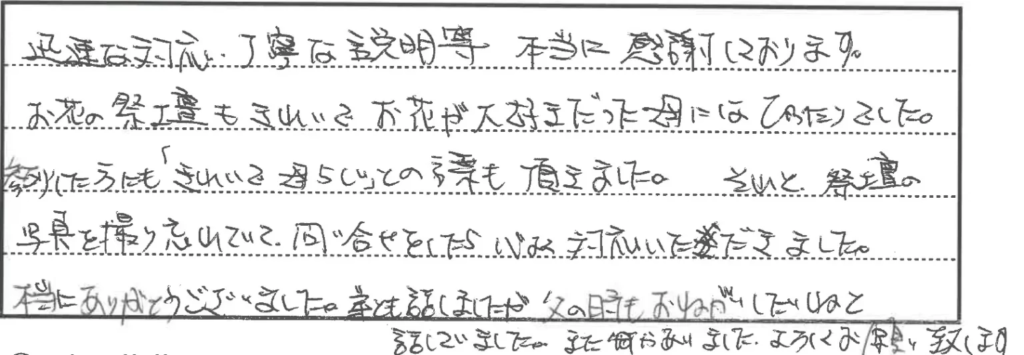 迅速な対応、丁寧な説明等 本当に感謝しております。
お花の祭壇もきれいで お花が大好きだった母にはぴったりでした。
参列した方にも「きれいで母らしい」との言葉も頂きました。 それと、祭壇の
写真を撮り忘れていて、問い合せをしたら 対応いただきました。
本当にありがとうございました。 とも話しましたが 父の時もおねがいしたいねと
話していました。また何かありました、よろしくお願い致します